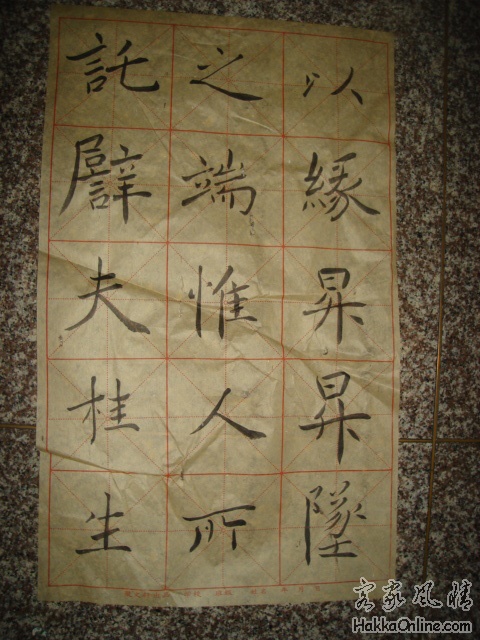 以緣昇昇墜
之端惟人所
託譬夫桂生
客家风情
HakkaOnline.com